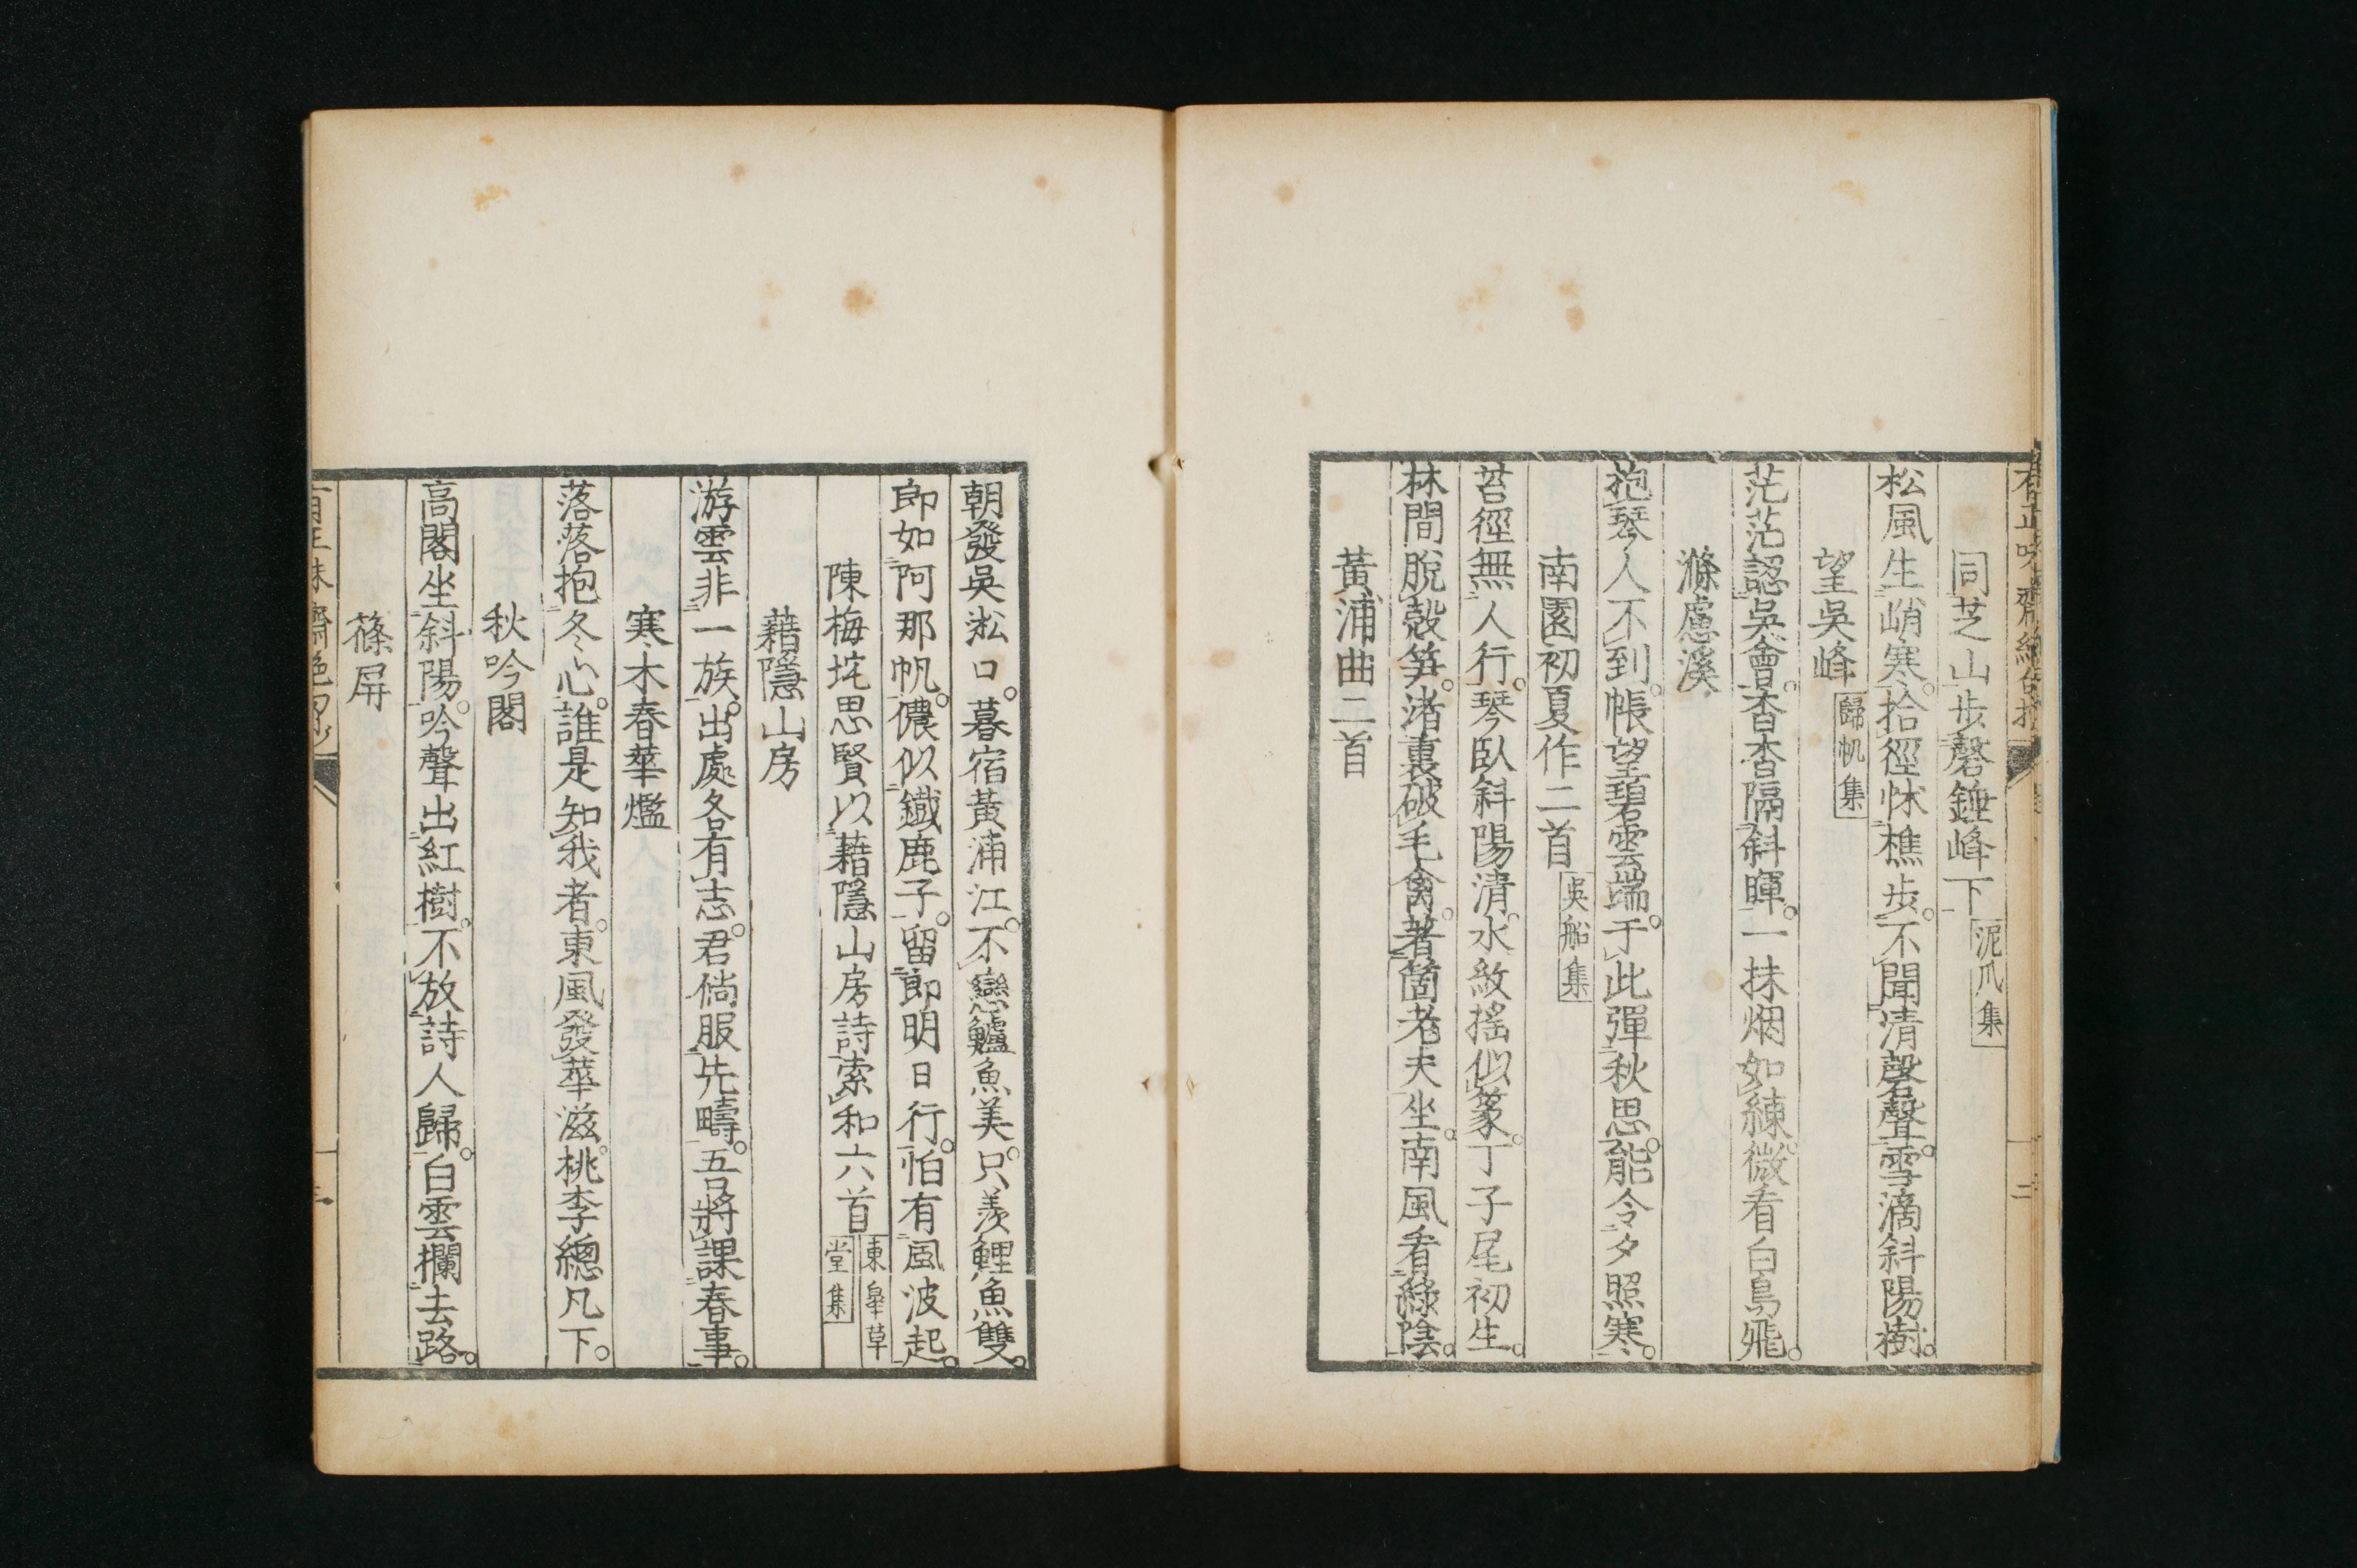 有正味齋絕句抄
二
同芝山步磬錘峰下 泥爪集
松風生峭寒。拾徑怵樵步。不聞清磬聲。雪滴斜陽樹。
望吳峰 歸帆集
茫茫認吳會。杳杳隔斜暉。一抹烟如練。微看白鳥飛。
滌慮溪
抱琴人不到。帳望碧雲端。于此彈秋思。能令夕照寒。
南園初夏作二首 吳船集
苔徑無人行。琴臥斜陽清。水紋搖似篆。丁子尾初生。
林間脫殼笋。渚裏破毛禽。著箇老夫坐。南風看綠陰。
黃浦曲二首
朝發吳淞口。暮宿黃浦江。不戀鱸魚美。只羨鯉魚雙。
郎如阿那帆。儂似鐵鹿子。留郎明日行。怕有風波起。
陳梅垞思賢以藉隱山房詩索和六首 東皋草堂集
藉隱山房
游雲非一族。出處各有志。君倘服先疇。吾將課春事。
寒木春華爁
落落抱冬心。誰是知我者。東風發華滋。桃李總凡下。
秋吟閣
高閣坐斜陽。吟聲出紅樹。不放詩人歸。白雲攔去路。
篠屏